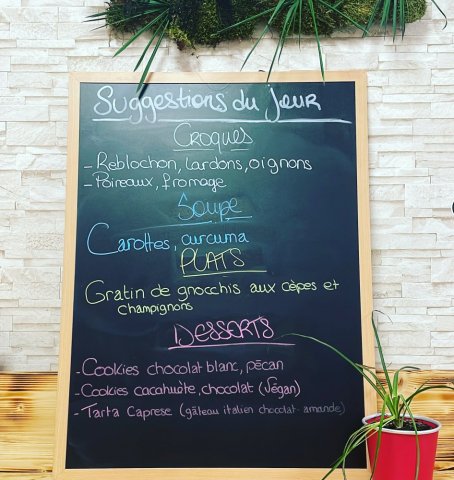 Suggestions du jour
CROQUES
- Reblochon, lardons, oignons
- Poireaux, fromage
Soupe
Carottes, curcuma
PLATS
Gratin de gnocchis aux cèpes et
champignons
DESSERTS
- Cookies chocolat blanc, pécan
- Cookies cacahuète, chocolat (végan)
- Tarta Caprese (gâteau italien chocolat-amande)